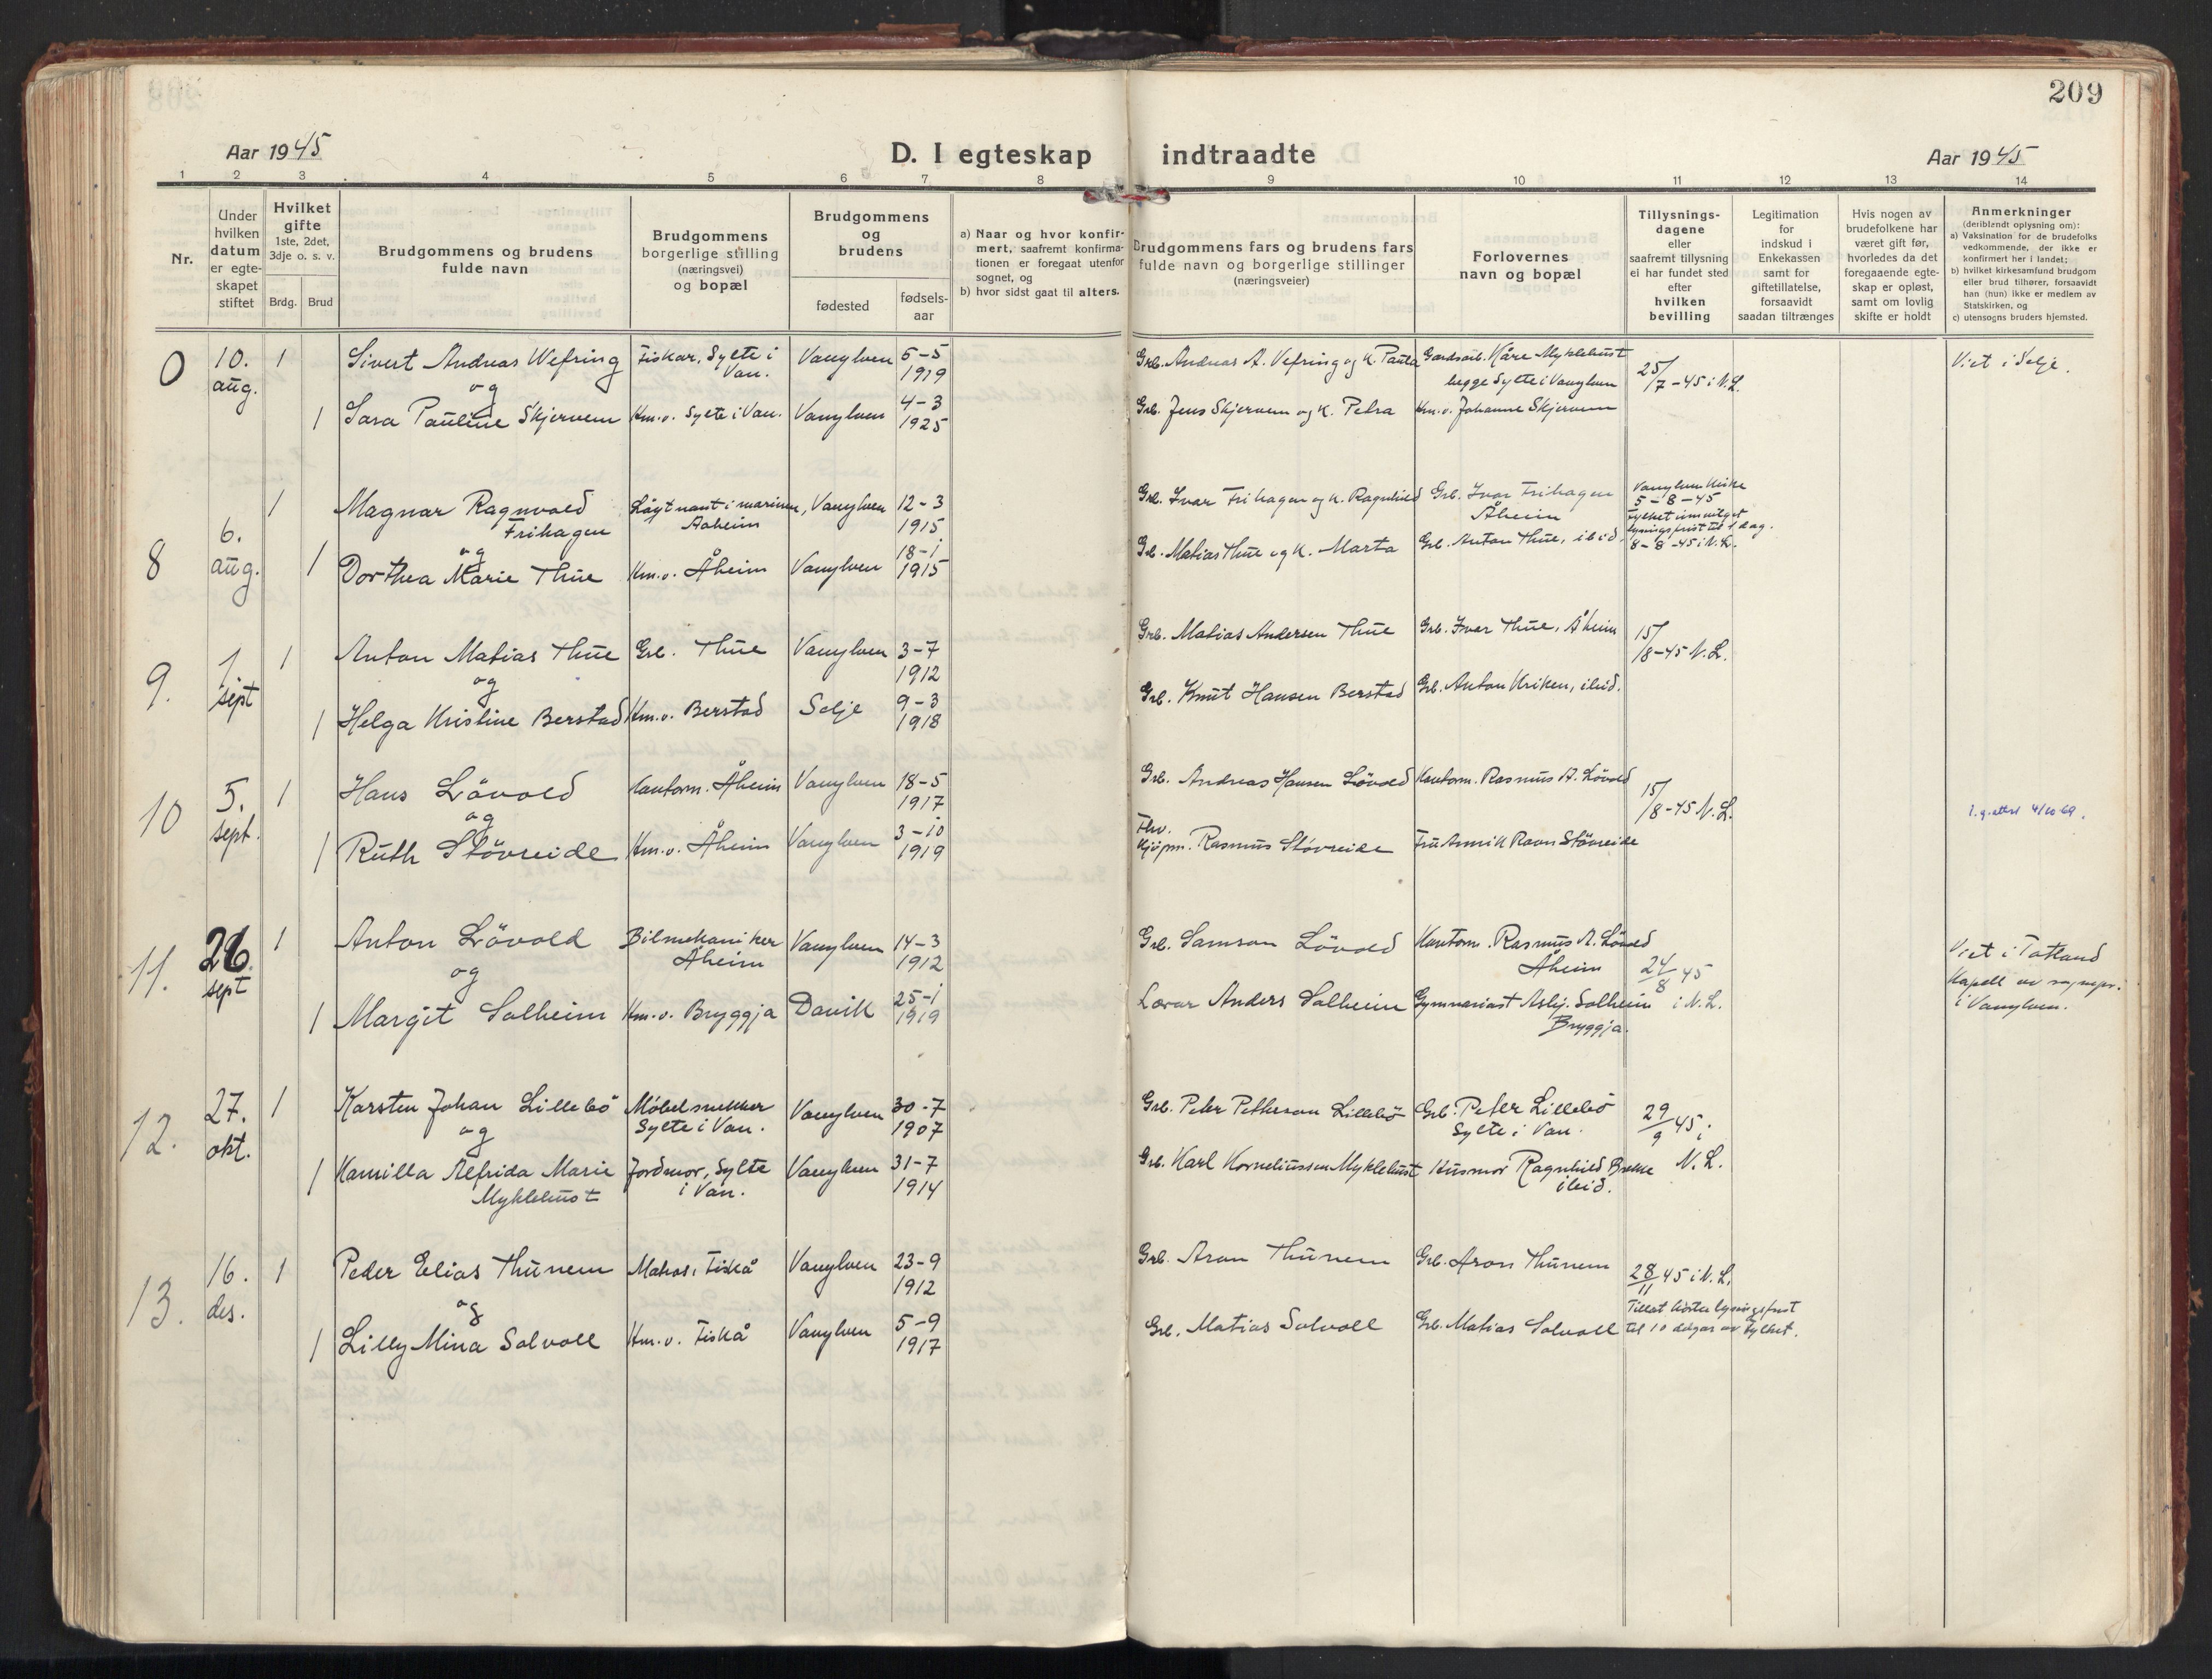 209
Aar 1945
D. I egteskap indtraadte
Aar 1945
1 2 3 4 5 6 7 8 9 10 11 12 13 14
Nr.
Under
hvilken
datum
er egte-
skapet
stiftet
Hvilket
gifte
1ste, 2det,
3dje o. s. v.
Brdg. Brud
Brudgommens og brudens
fulde navn
Brudgommens
borgerlige stilling
(næringsvei)
og bopæl
Brudgommens
og
brudens
fødested
fødsels-
aar
a) Naar og hvor konfir-
mert, saafremt konfirma-
tionen er foregaat utenfor
sognet, og
b) hvor sidst gaat til alters.
Brudgommens fars og brudens fars
fulde navn og borgerlige stillinger
(næringsveier)
Forlovernes
navn og bopæl
Tillysnings-
dagene
eller
saafremt tillysning
ei har fundet sted
efter
hvilken
bevilling
Legitimation
for
indskud i
Enkekassen
samt for
giftetillatelse,
forsaavidt
saadan tiltrænges
Hvis nogen av
brudefolkene har
været gift før,
hvorledes da det
foregaaende egte-
skap er opløst,
samt om lovlig
skifte er holdt
Anmerkninger
(deriblendt oplysning om):
a) Vaksination for de brudefolks
vedkommende, der ikke er
konfirmert her i landet;
b) hvilket kirkesamfund brudgom
eller brud tilhører, forsaavidt
han (hun) ikke er medlem av
Statskirken, og
c) utensogns bruders hjemsted.
0 10. aug. 1 Sivert Andreas Wefring Fiskar, Sylte i Van. Vanylven 5-5 1919 Grb. Andreas A. Vefring og K. Paula Gardsarb. Kåre Myklebust begge Sylte i Vanylven 25/7-45 i N.L. Viet i Selje.
og
1 Sara Pauline Skjervem Hm.v. Sylte i Van. Vanylven 4-3 1925 Grb. Jens Skjervem og K. Petra Hm.v. Johanne Skjervem
8 6. aug. 1 Magnar Ragnvald Frihagen Løytnant i marinen, Aaheim Vanylven 12-3 1915 Grb. Ivar Frihagen og K. Ragnhild Grb. Ivar Frihagen Åheim Vanylven kirke 5-8-45
Fylket innvilget
lysingsfrist til 1 dag.
8-8-45 i N.L.
og
1 Dorthea Marie Thue Hm.v. Åheim Vanylven 18-1 1915 Grb. Matias Thue og K. Marta Grb. Anton Thue, ibid.
9. 1 sept 1 Anton Matias Thue Grb. Thue Vanylven 3-7 1912 Grb. Matias Andersen Thue Grb. Ivar Thue, Åheim 15/8-45 N.L.
og
1 Helga Kristine Berstad Hm.v. Berstad Selje 9-3 1918 Grb. Knut Hansen Berstad Grb. Anton Kriken, ibid.
10 5. sept. 1 Hans Lövold Kontorm. Åheim Vanylven 18-5 1917 Grb. Andreas Hansen Lövold Kontorm. Rasmus A. Lövold 15/8-45 N.L.
og
1 Ruth Stövreide Hm.v. Åheim Vanylven 3-10 1919 Fhv. Kjöpm. Rasmus Stövreide Fru Annik Ravn Stövreide
11. 26. sept 1 Anton Lövold Bilmekaniker Åheim Vanylven 14-3 1912 Grb. Samson Lövold Kontorm. Rasmus A. Lövold Åheim 24/8 45 i N.L. Viet i Totland
Kapell av sognepr.
i Vanylven.
og
1 Margit Solheim Hm.v. Bryggja Davik 25-1 1919 Lærar Anders Solheim Gymnasiast Asbj. Solheim Bryggja.
12. 27. okt. 1 Karsten Johan Lillebö Möbelsnekker Sylte i Van. Vanylven 30-7 1907 Grb. Peter Petterson Lillebö Grb. Peter Lillebö Sylte i Van. 29/9 45 i N.L.
og
1 Kamilla Alfrida Marie Myklebust Jordmor, Sylte i Van. Vanylven 31-7 1914 Grb. Karl Korneliussen Myklebust Husmor Ragnhild Brekke ibid.
13. 16. des. 1 Peder Elias Thunem Matros, Fiskå Vanylven 23-9 1912 Grb. Aron Thunem Grb. Aron Thunem 28/11 45 i N.L.
Tillat korta lysingsfrist
til 10 dagar av fylket.
og
1 Lilly Mina Solvoll Hm.v. Fiskå Vanylven 5-9 1917 Grb. Matias Solvoll Grb. Matias Solvoll